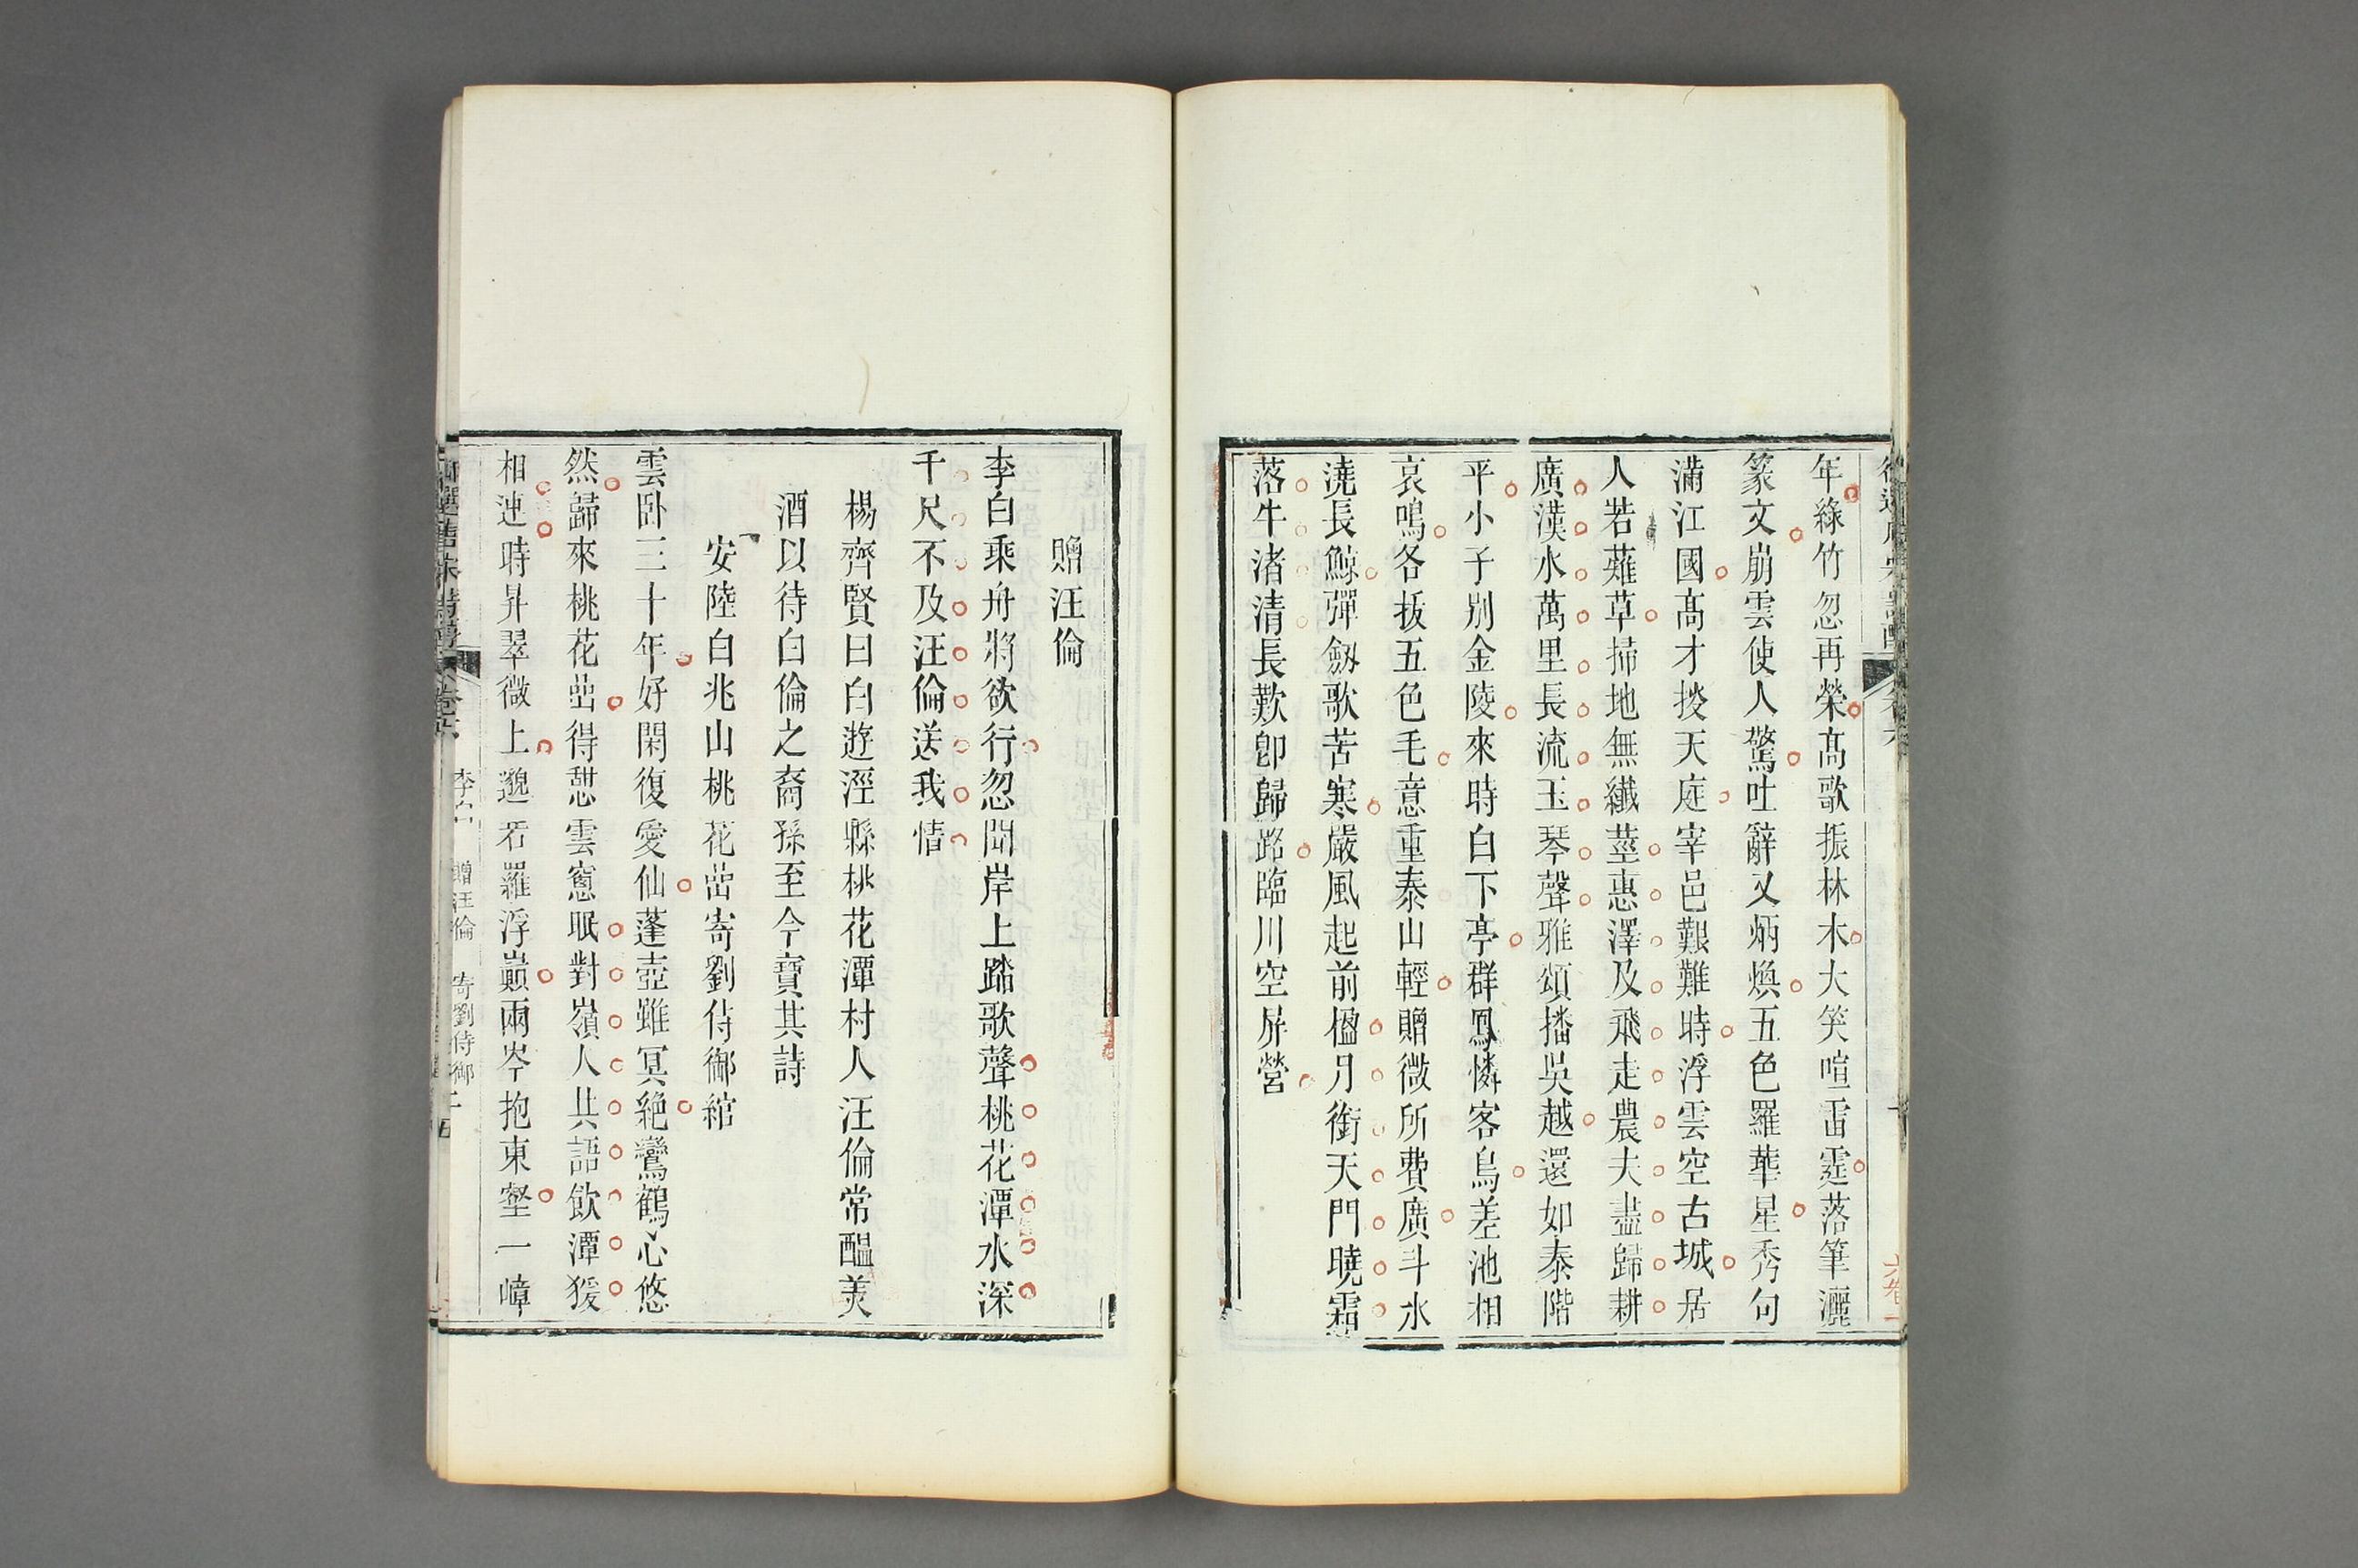 年綠竹忽再榮高歌振林木大笑喧雷霆落筆灑
篆文崩雲使人驚吐辭又炳煥五色羅華星秀句
滿江國高才掞天庭宰邑艱難時浮雲空古城居
人若薙草掃地無纖莖惠澤及飛走農夫盡歸耕
廣漢水萬里長流玉琴聲雅頌播吳越還如泰階
平小子別金陵來時白下亭群鳳憐客鳥差池相
哀鳴各拔五色毛意重泰山輕贈微所費廣斗水
澆長鯨彈劍歌苦寒嚴風起前楹月銜天門曉霜
落牛渚清長歎卽歸路臨川空屏營
贈汪倫
李白乘舟將欲行忽聞岸上踏歌聲桃花潭水深
千尺不及汪倫送我情
楊齊賢曰白遊涇縣桃花潭村人汪倫常醞美
酒以待白倫之裔孫至今寶其詩
安陸白兆山桃花岩寄劉侍御綰
雲臥三十年好閑復愛仙蓬壺雖冥絕鸞鶴心悠
然歸來桃花岩得憩雲窻眠對嶺人共語飲潭猨
相連時昇翠微上邈若羅浮巔兩岑抱東壑一嶂
李白 贈汪倫 寄劉侍御